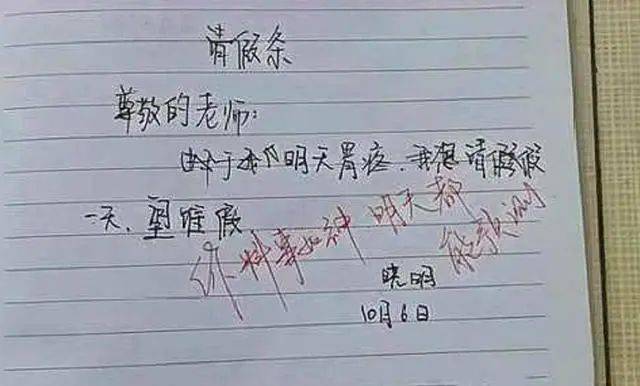 请假条
尊敬的老师:
由于我明天胃疼.我想请假
一天.望准假
你料事如神.明天都能预测
晓明
10月6日